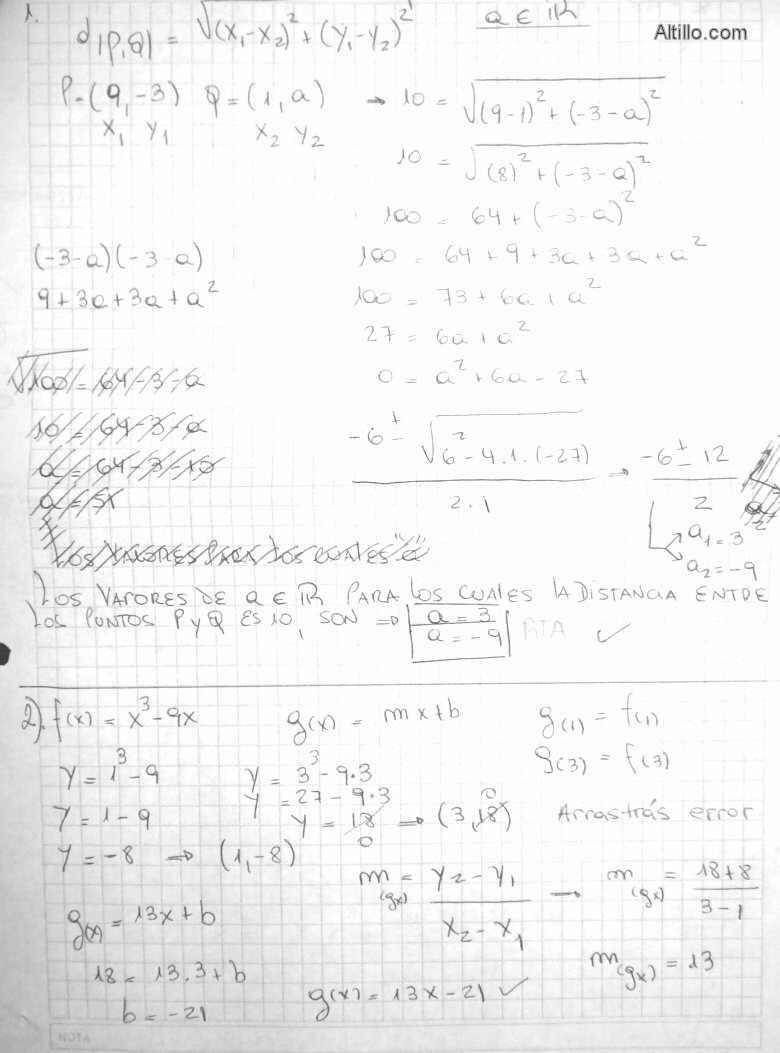 1.
d(P,Q) = √(x₁-x₂)² + (y₁-y₂)²   a ∈ ℝ
Altillo.com
P=(9,-3)   Q=(1,a)   → 10 = √(9-1)² + (-3-a)²
x₁ y₁   x₂ y₂
10 = √(8)² + (-3-a)²
100 = 64 + (-3-a)²
(-3-a)(-3-a)   100 = 64 + 9 + 3a + 3a + a²
9+3a+3a+a²   100 = 73 + 6a + a²
27 = 6a + a²
√100 = 64-3-a   0 = a² + 6a - 27
10 = 64-3-a
a = 64-3-10
a = 51
-6 ± √6² - 4.1.(-27) / 2.1 → -6 ± 12 / 2
a₁ = 3
a₂ = -9
LOS VALORES PARA LOS CUALES "a"
LOS VALORES DE a ∈ ℝ PARA LOS CUALES LA DISTANCIA ENTRE
LOS PUNTOS P y Q ES 10, SON ⇒ a = 3
a = -9 RTA ✓
2). f(x) = x³-9x   g(x) = mx+b   g(1) = f(1)
g(3) = f(3)
y = 1³-9   y = 3³-9.3
y = 1-9   y = 27-9.3
y = 18 0 ⇒ (3,18) 0   Arrastrás error
y = -8 ⇒ (1,-8)
m(gx) = y₂-y₁ / x₂-x₁ → m(gx) = 18+8 / 3-1
g(x) = 13x+b
18 = 13.3+b   m(gx) = 13
b = -21   g(x) = 13x-21 ✓
NOTA